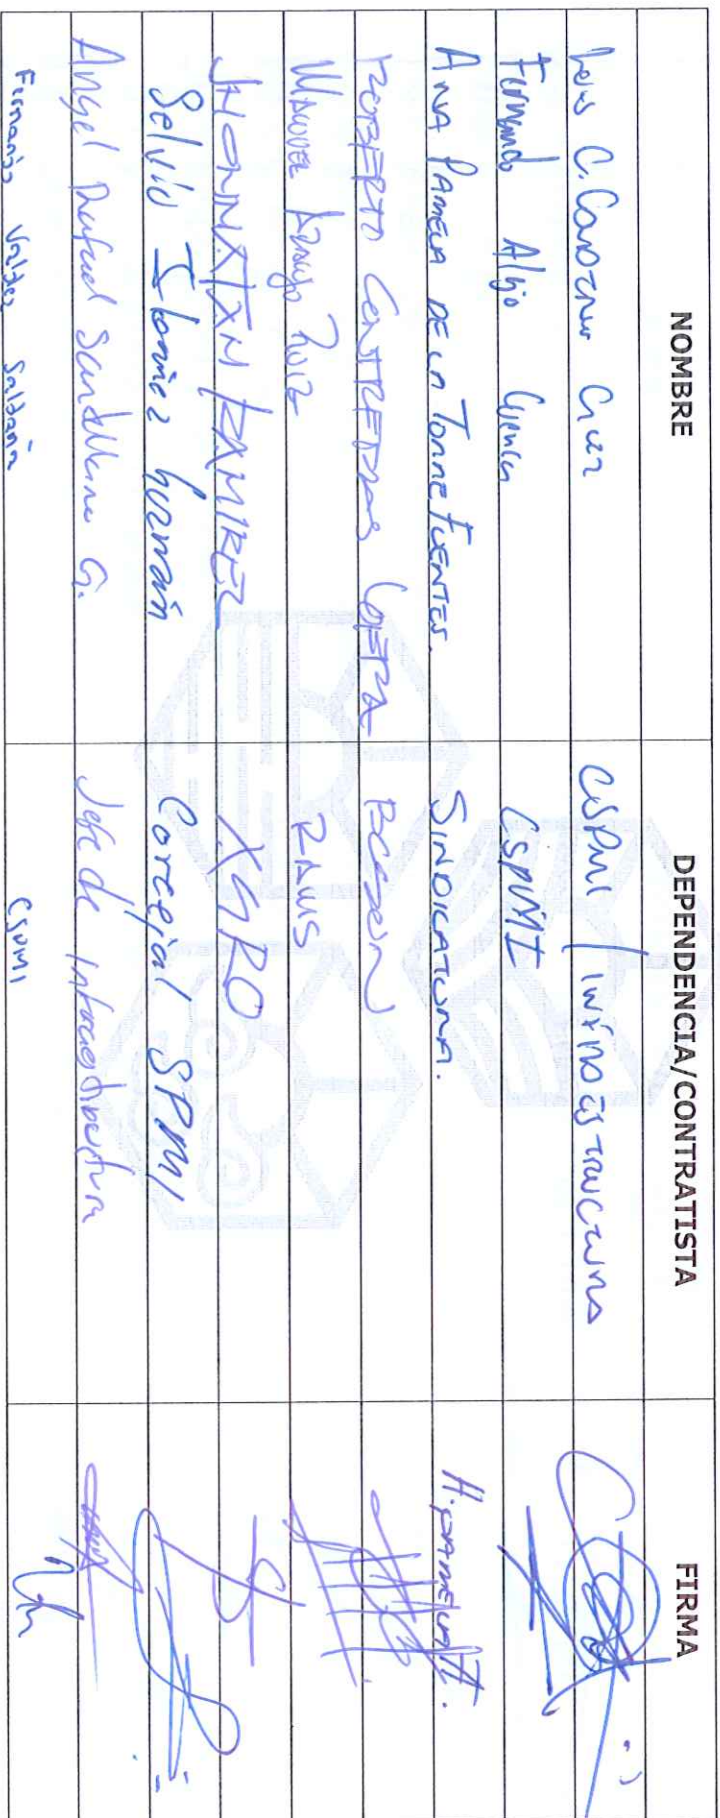 NOMBRE DEPENDENCIA/CONTRATISTA FIRMA
Luis C. Cardenas Cruz CSPMI / Infraestructura
Fernando Alejo CSPMI
ANA PAMELA DE LA TORRE FUENTES. SINDICATURA. A. PAMELA
ROBERTO CONTRERAS
MANUEL Araujo Ruiz RAUS
JHONNATAN RAMIREZ XGRO
Selvio Guzmán Concejal SPMI
Angel Rafael Santillana G. Jefe de Infraestructura
Fernando Valdez Saldaña CSPMI